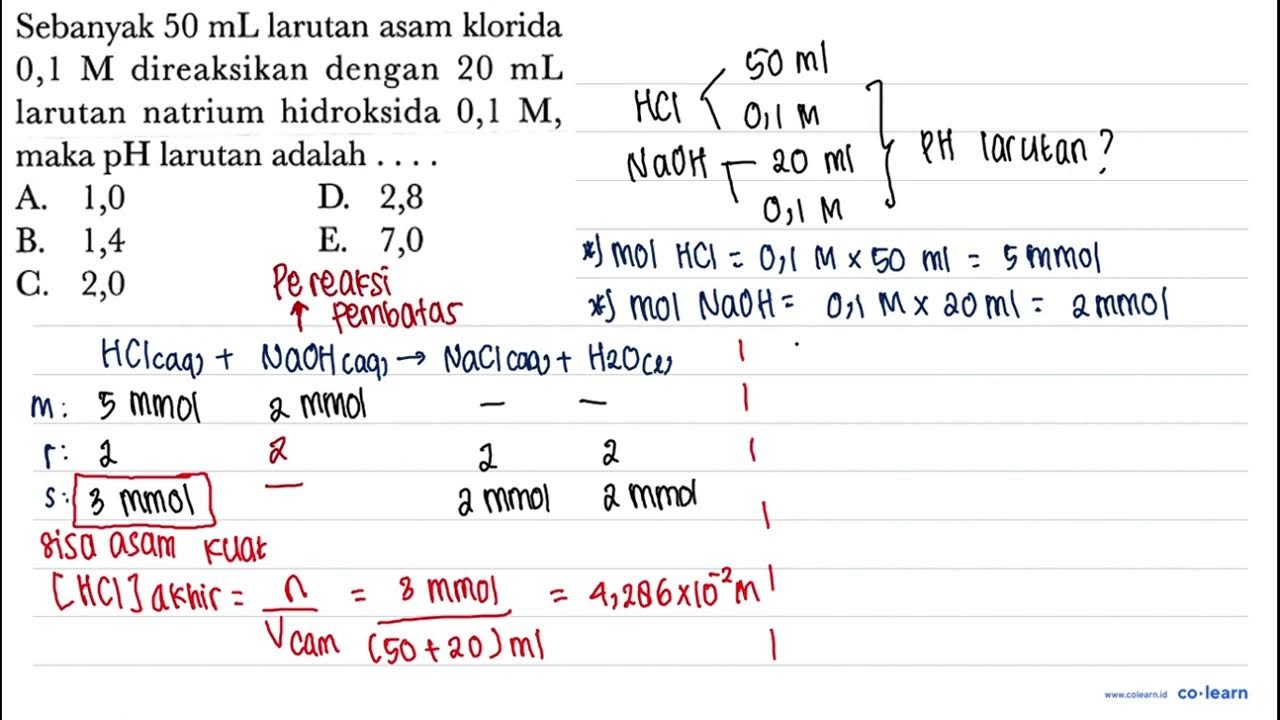 Sebanyak 50 mL larutan asam klorida
0,1 M direaksikan dengan 20 mL
larutan natrium hidroksida 0,1 M,
maka pH larutan adalah . . . .
A. 1,0 D. 2,8
B. 1,4 E. 7,0
C. 2,0
HCl 50 ml
0,1 M
NaOH 20 ml
0,1 M
PH larutan?
*) mol HCl = 0,1 M × 50 ml = 5 mmol
*) mol NaOH = 0,1 M × 20 ml = 2 mmol
Pereaksi
↑ Pembatas
HCl(aq) + NaOH(aq) → NaCl(aq) + H2O(l)
m: 5 mmol 2 mmol — —
r: 2 2 2 2
s: 3 mmol — 2 mmol 2 mmol
sisa asam kuat
[HCl] akhir = n / V cam = 3 mmol / (50 + 20) ml = 4,286 × 10⁻² M
www.colearn.id co·learn